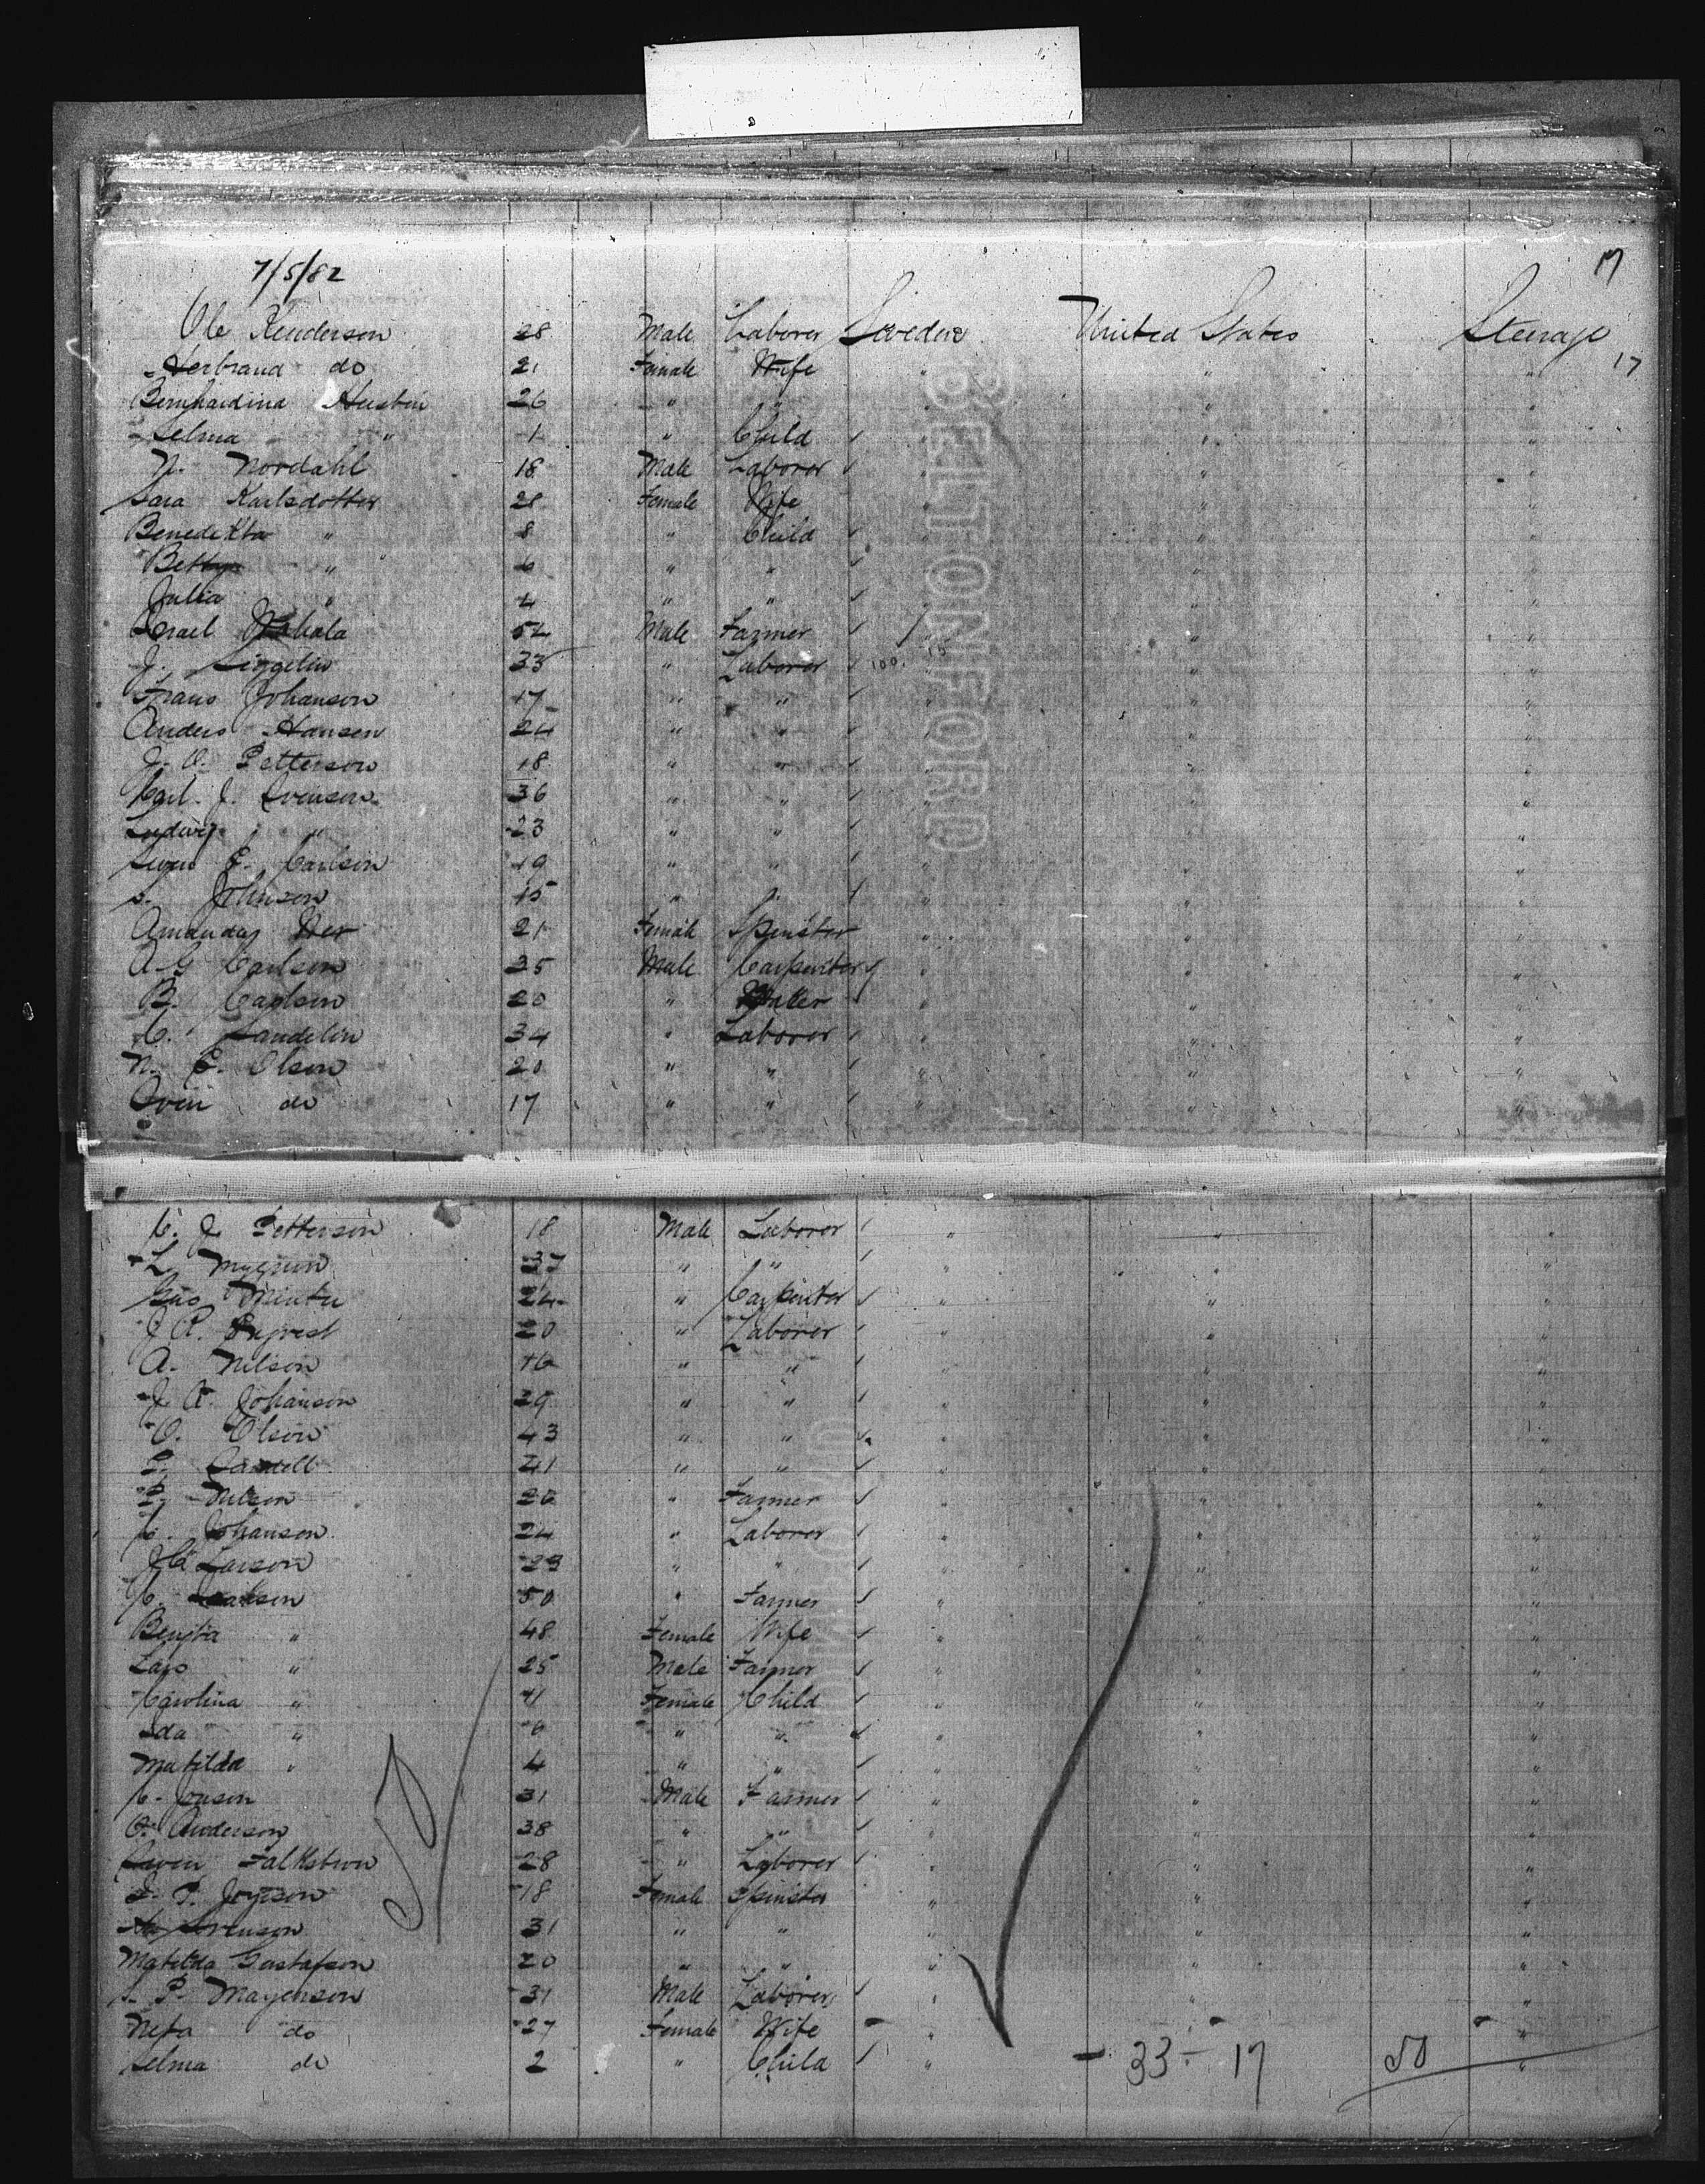 7/5/82 17
Ole Kenderson 28 Male Laborer Sweden United States Steerage
Herbrand do 21 Female Wife " " " 17
Bernhardina 26 " " " " "
Selma " 1 " Child " " "
N. Nordahl 18 Male Laborer " " "
Sara Karlsdotter 28 Female Wife " " "
Benedikta " 8 " Child " " "
Betty " 6 " " " " "
Julia " 4 " " " " "
Israel 54 Male Farmer " " "
J. 33 " Laborer 100. 15 " " "
Frans Johanson 17 " " " " "
Anders Hansen 24 " " " " "
J. O. Petterson 18 " " " " "
Carl. J. Svenson 36 " " " " "
Ludwig " 23 " " " " "
Sven E. Carlson 19 " " " " "
S. Johnson 15 " " " " "
Amanda 21 Female Spinster " " "
A. G Carlson 35 Male Carpenter " " "
B. Carlson 20 " " " "
C. Sandelin 34 " Laborer " " "
N. E. Olson 20 " " " " "
Sven do 17 " " " " "
BELTONFORD
C. J. Petterson 18 Male Laborer " " "
L. 37 " " " " "
Gus 24 " Carpenter " " "
J. A. 20 " Laborer " " "
A. Nilson 16 " " " " "
J. A. Johanson 29 " " " " "
O. Olson 43 " " " " "
41 " " " " "
26 " Farmer " " "
C. Johanson 24 " Laborer " " "
J. A. Larson 23 " " " " "
C. 50 " Farmer " " "
Bengta " 48 Female Wife " " "
Lars " 25 Male Farmer " " "
Carolina " 11 Female Child " " "
Ida " 6 " " " " "
Matilda " 4 " " " " "
C. Jonson 31 Male Farmer " " "
O. Anderson 38 " " " " "
Sven 28 " Laborer " " "
P. 18 Female Spinster " " "
Svenson 31 " " " " "
Matilda Gustafson 20 " " " " "
S. P. 31 Male Laborer " " "
do 27 Female Wife " " "
Selma do 2 " Child " - 33 - 17 50 "